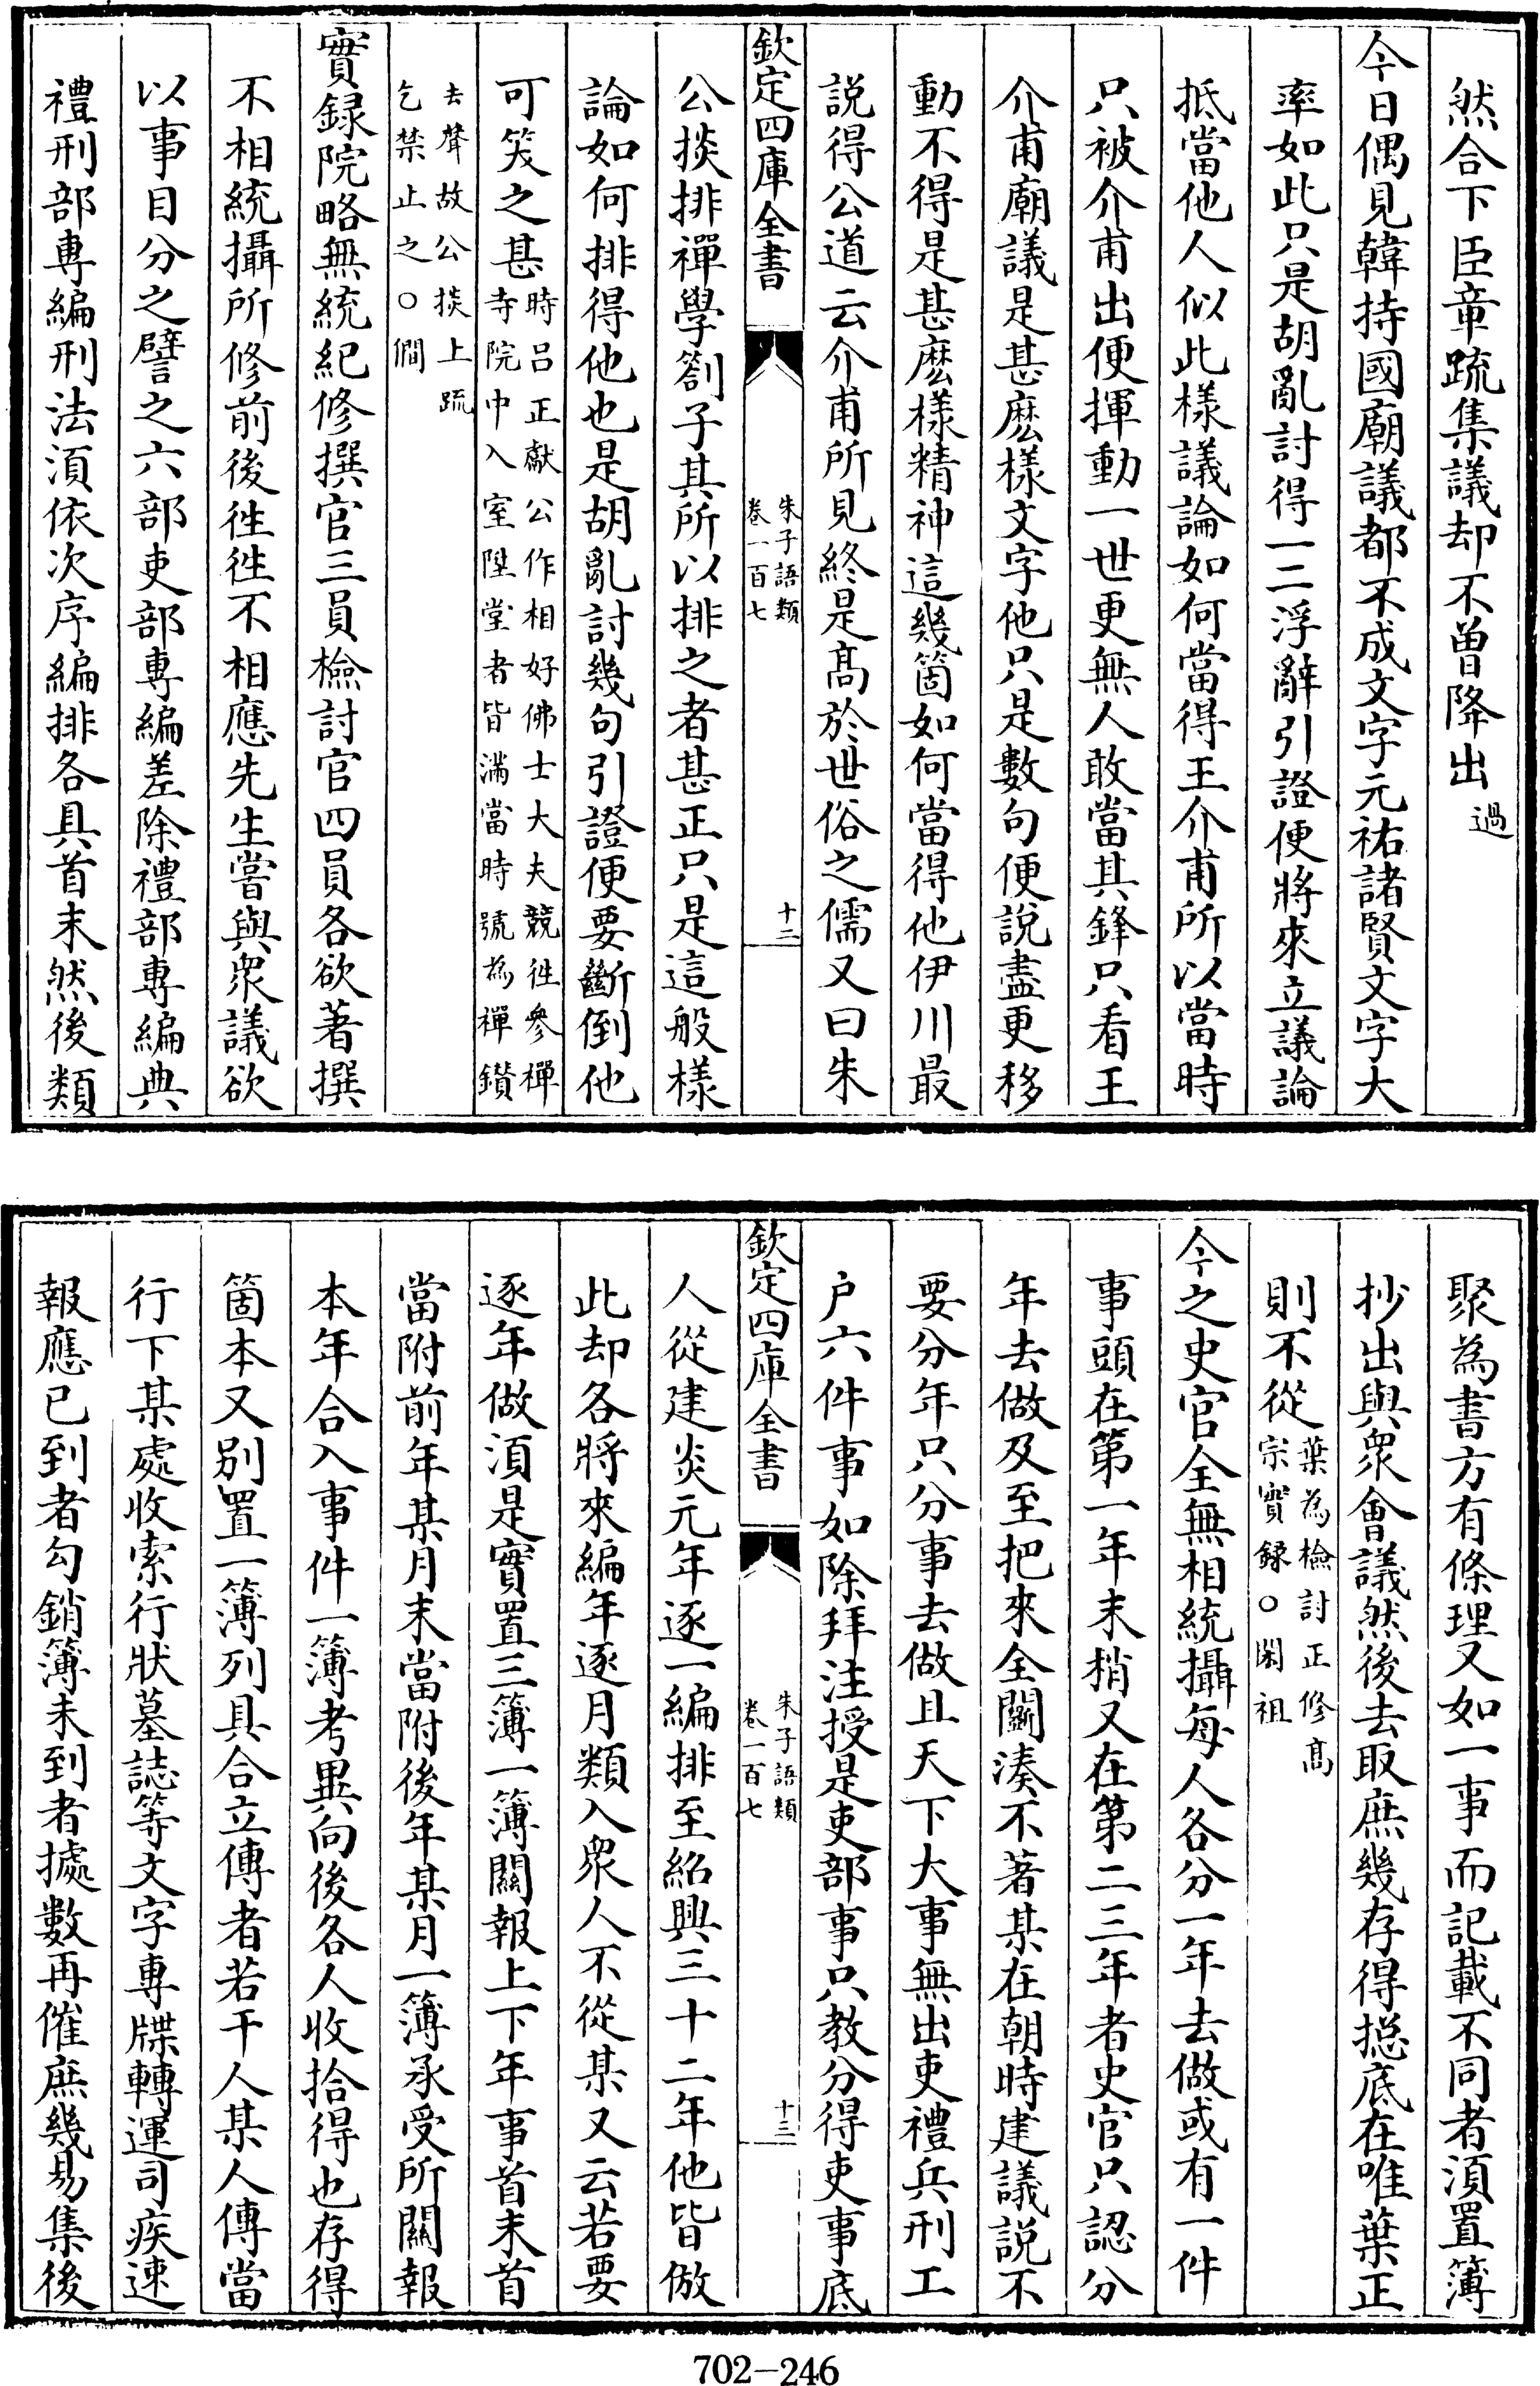 然合下臣章疏集議却不曽降出過
今日偶見韓持國廟議都不成文字元祐諸賢文字大
率如此只是胡亂討得一二浮辭引證便將來立議論
抵當他人似此樣議論如何當得王介甫所以當時
只被介甫出便揮動一世更無人敢當其鋒只看王
介甫廟議是甚麽樣文字他只是數句便說盡更移
動不得是甚麽樣精神這幾箇如何當得他伊川最
説得公道云介甫所見終是髙於世俗之儒又曰朱
欽定四庫全書
朱子語類
卷一百七
十二
公掞排禪學劄子其所以排之者甚正只是這般樣
論如何排得他也是胡亂討幾句引證便要斷倒他
可笑之甚
時吕正獻公作相好佛士大夫競徃參禪
寺院中入室陞堂者皆滿當時號為禪鑚
去聲故公掞上疏
乞禁止之○僴
實録院略無統紀修撰官三員檢討官四員各欲著撰
不相統攝所修前後徃徃不相應先生嘗與衆議欲
以事目分之譬之六部吏部專編差除禮部專編典
禮刑部專編刑法湏依次序編排各具首末然後類
聚為書方有條理又如一事而記載不同者湏置簿
抄出與衆會議然後去取庶幾存得揔底在唯葉正
則不從
葉為檢討正修髙
宗實録○閎祖
今之史官全無相統攝每人各分一年去做或有一件
事頭在第一年末梢又在第二三年者史官只認分
年去做及至把來全鬬湊不著某在朝時建議説不
要分年只分事去做且天下大事無出吏禮兵刑工
户六件事如除拜注授是吏部事只教分得吏事底
欽定四庫全書
朱子語類
卷一百七
十三
人從建炎元年逐一編排至紹興三十二年他皆倣
此却各將來編年逐月類入衆人不從某又云若要
逐年做湏是實置三簿一簿關報上下年事首末首
當附前年某月末當附後年某月一簿承受所關報
本年合入事件一簿考異向後各人收拾得也存得
箇本又别置一簿列具合立傳者若干人某人傳當
行下某處收索行狀墓誌等文字專牒轉運司疾速
報應已到者勾銷簿未到者據數再催庶幾易集後
702-246